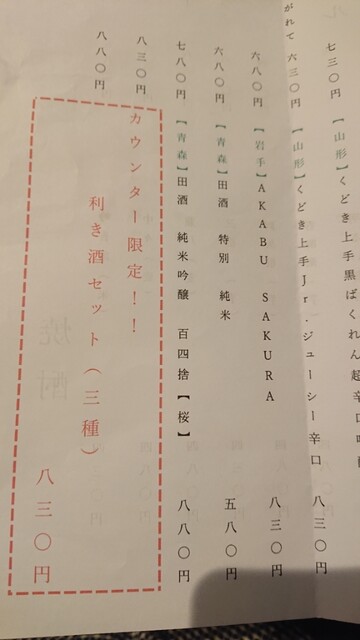 七三〇円
【山形】くどき上手黒ばくれん 超辛口吟醸
がれて
六三〇円
【山形】くどき上手Jr.ジューシー辛口
八三〇円
六八〇円
【岩手】AKABU SAKURA
八三〇円
六八〇円
【青森】田酒 特別 純米
五八〇円
七八〇円
【青森】田酒 純米吟醸 百四捨【桜】
八八〇円
八三〇円
八八〇円
カウンター限定！！
利き酒セット（三種）
八三〇円
焼酎